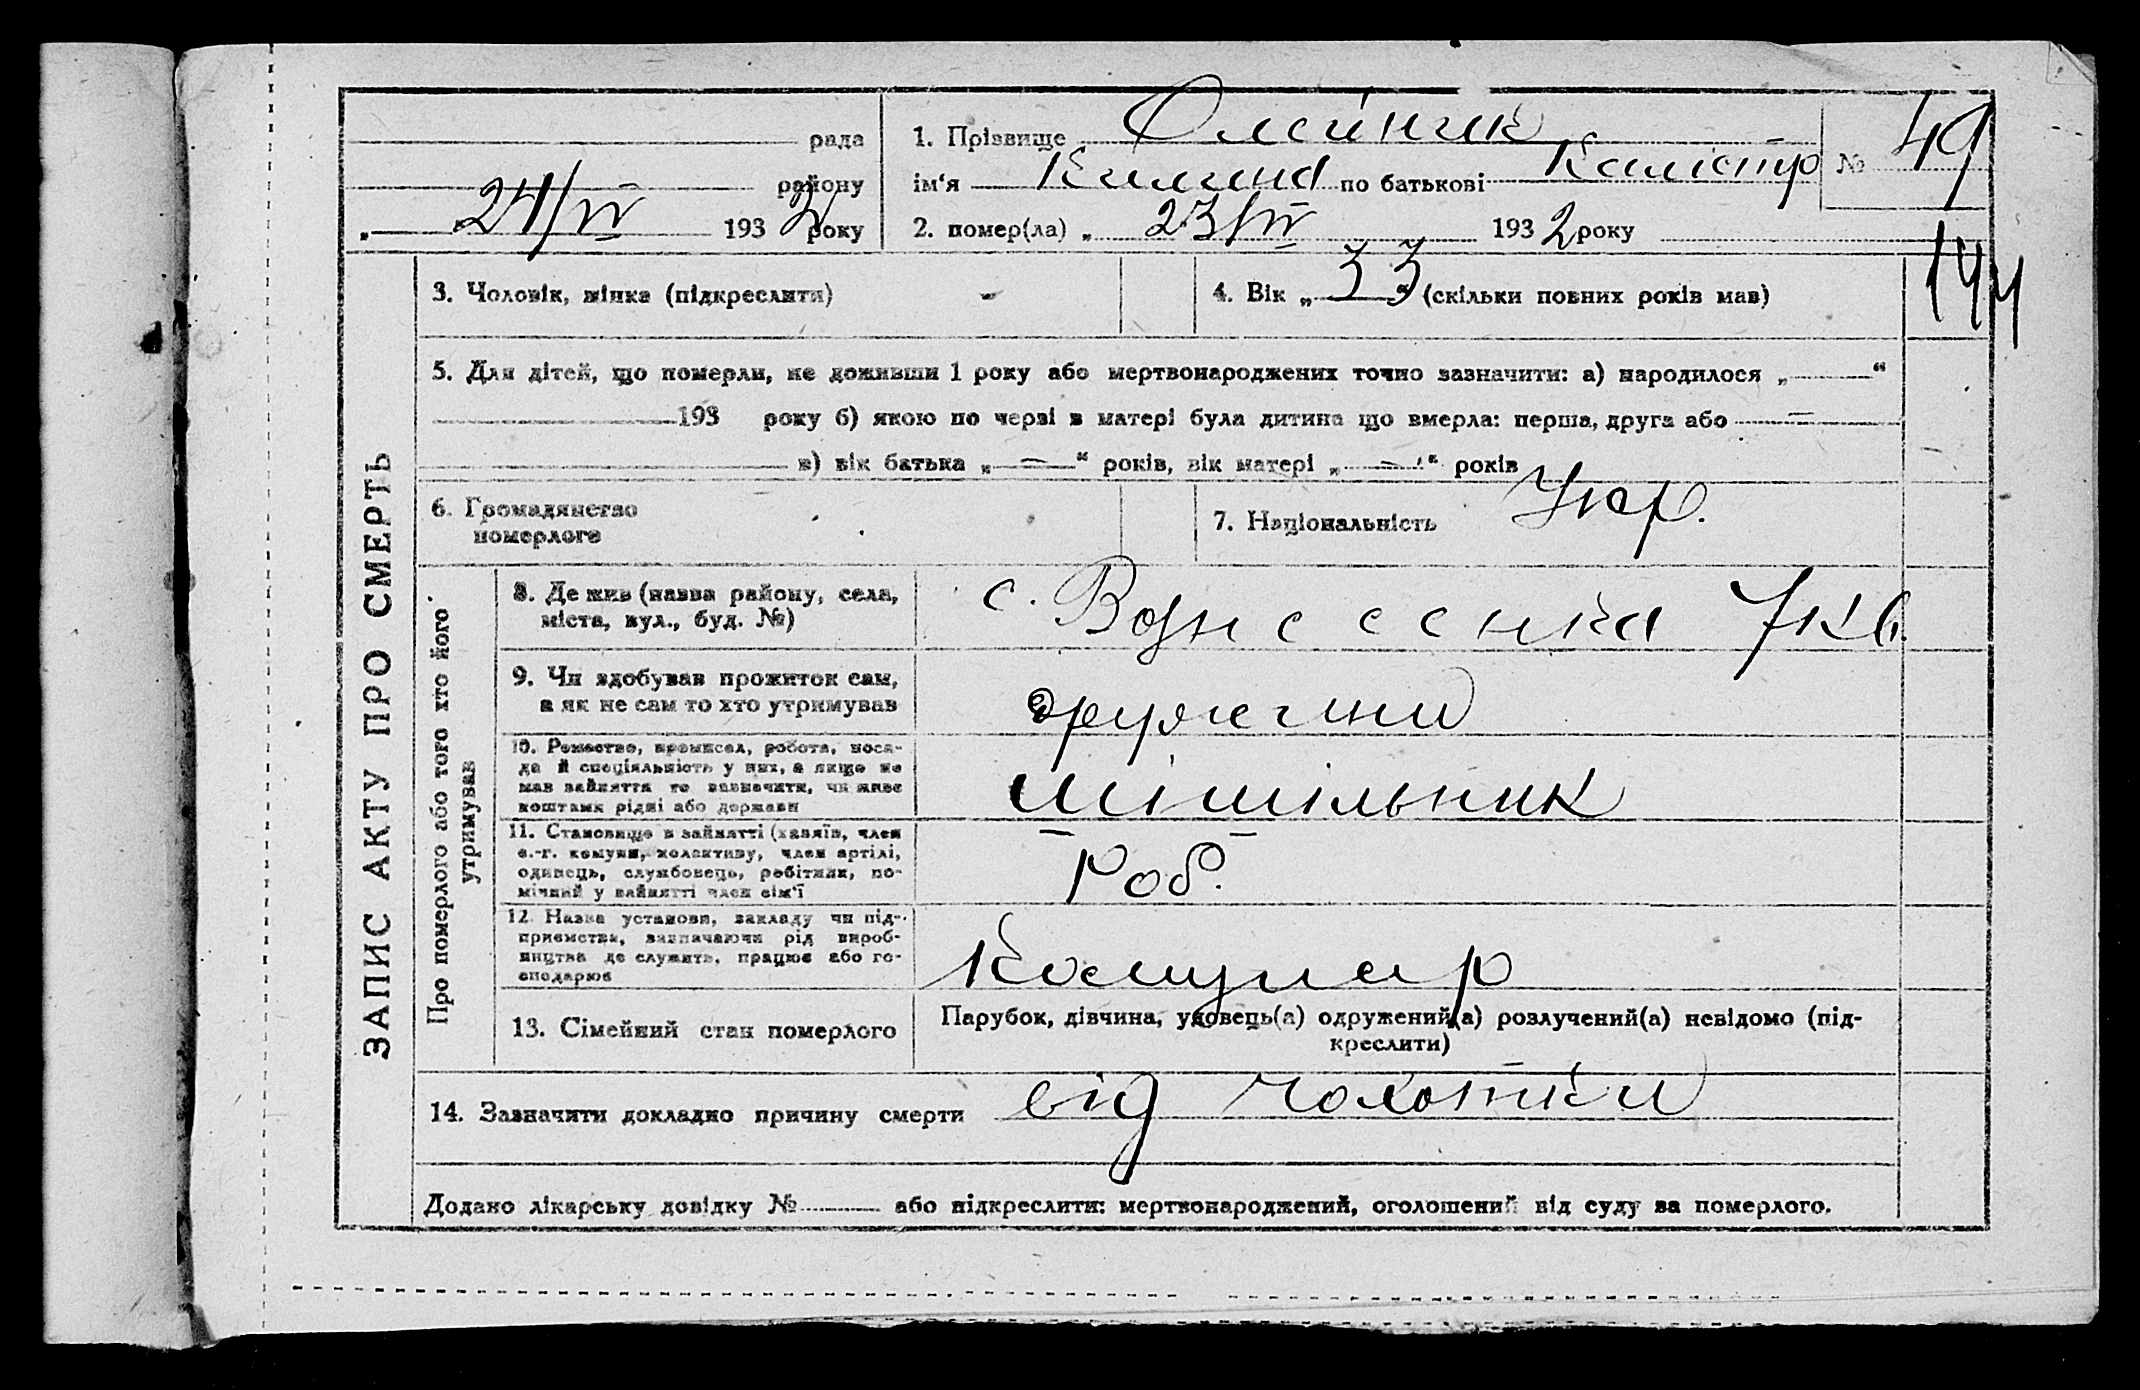 рада
району
„ 24/IV 1932 року
1. Прізвище Олейник
ім‘я Килина по батькові Калістр
№ 49
2. помер(ла) „ 23/IV 1932 року
144
ЗАПИС АКТУ ПРО СМЕРТЬ
3. Чоловік, жінка (підкреслити)
4. Вік „ 33 “ (скільки повних років мав)
5. Для дітей, що померли, не доживши 1 року або мертвонароджених точно зазначити: а) народилося „ “
193 року б) якою по черзі в матері була дитина що вмерла: перша, друга або —
в) вік батька „ — “ років, вік матері „ — “ років
6. Громадянство
померлого
7. Національність Укр.
Про померлого або того хто його
утримував
8. Де жив (назва району, села,
міста, вул., буд. №)
с. Вознесенка 7 кв.
9. Чи здобував прожиток сам,
а як не сам то хто утримував
дружини
10. Ремество, промисел, робота, поса-
да й спеціяльність у них, а якщо не
мав зайняття то зазначити, чи живе
коштами рідні або держави
11. Становище в зайнятті (хазяїн, член
с.-г. комуни, колективу, член артілі,
одинець, службовець, робітник, по-
мічний у зайнятті член сім‘ї
Роб.
12. Назва установи, закладу чи під-
приємства, зазначаючи рід вироб-
ництва де служить, працює або го-
сподарює
Комунар
13. Сімейний стан померлого
Парубок, дівчина, удовець(а) одружений(а) розлучений(а) невідомо (під-
креслити)
14. Зазначити докладно причину смерти від чохотки
Додано лікарську довідку № або підкреслити: мертвонароджений, оголошений від суду за померлого.